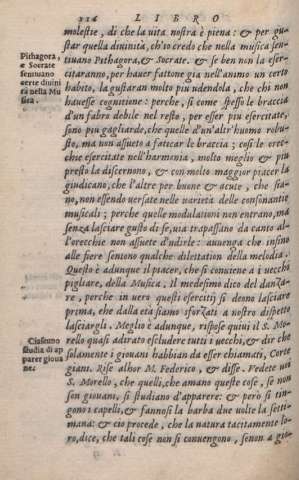 116 LIBRO
molestie, di che la uita nostra è piena: & per gu-
star quella diuinità, ch'io credo che nella musica sen-
Pithagora,
e Socrate
sentiuano
certe diuini
tà nella Mu
sica.
tiuano Pithagora, & Socrate. & se ben non la eser-
citaranno, per hauer fattone gia nell'animo un certo
habito, la gustaran molto piu udendola, che chi non
hauesse cognitione: perche, si come spesso le braccia
d'un fabro debile nel resto, per esser piu esercitate,
sono piu gagliarde, che quelle d'un'altr'huomo robu-
sto, ma non assueto a faticar le braccia; cosi le orec-
chie esercitate nell'harmonia, molto meglio & piu
presto la discernono, & con molto maggior piacer la
giudicano, che l'altre per buone & acute, che sia-
no, non essendo uersate nelle uarietà delle consonantie
musicali; perche quelle modulationi non entrano, ma
senza lasciare gusto di se, uia trapassano da canto al-
l'orecchie non assuete d'udirle: auuenga che insino
alle fiere sentono qualche dilettation della melodia.
Questo è adunque il piacer, che si conuiene a i uecchi
pigliare, della Musica. Il medesimo dico del danza-
re, perche in uero questi esercitij si deono lasciare
prima, che dalla età siamo sforzati a nostro dispetto
lasciargli. Meglio è adunque, rispose quiui il S. Mo-
rello quasi adirato escludere tutti i uecchi, & dir che
Ciascuno
studia di ap
parer gioua
ne.
solamente i giouani habbian da esser chiamati, Corte
giani. Rise alhor M. Federico, & disse. Vedete uoi
S. Morello, che quelli, che amano queste cose, se non
son giouani, si studiano d'apparere: & però si tin-
gono i capelli, & fannosi la barba due uolte la setti-
mana: & ciò procede, che la natura tacitamente lo-
ro, dice, che tali cose non si conuengono, senon a gio-